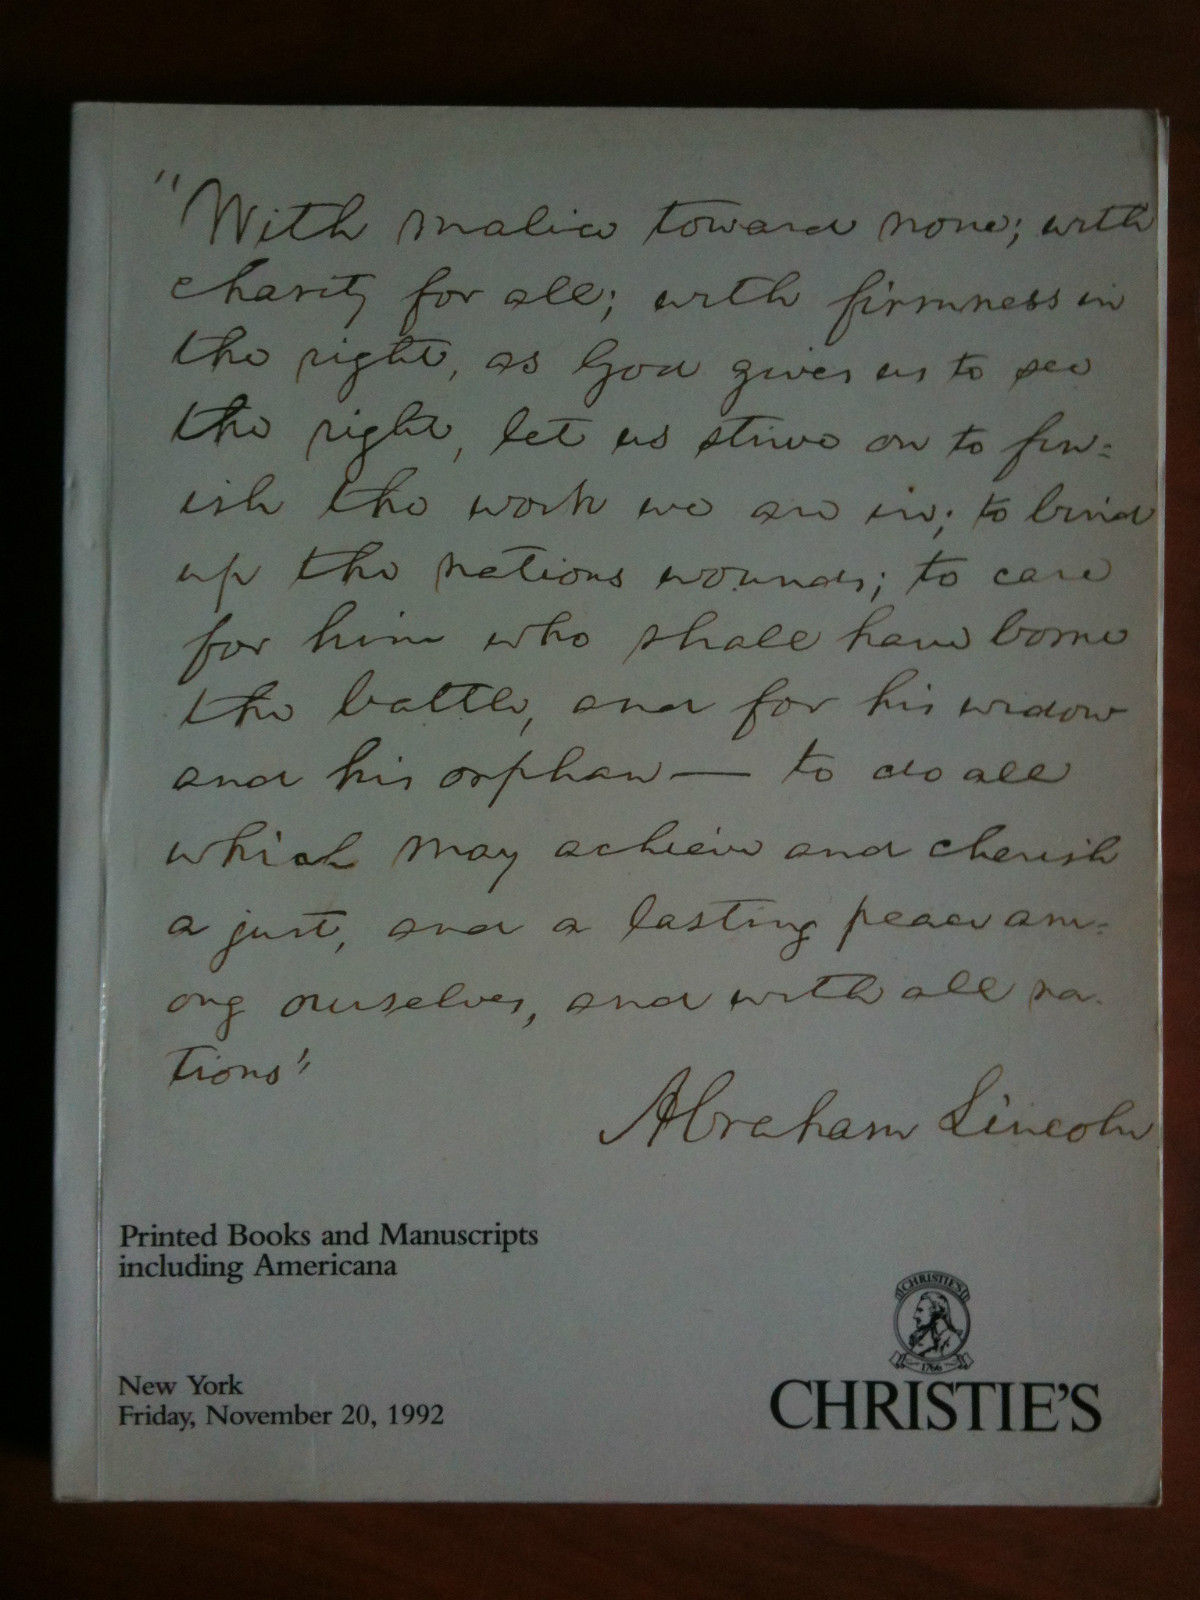 "With malice toward none; with
charity for all; with firmness in
the right, as God gives us to see
the right, let us strive on to fin=
ish the work we are in; to bind
up the nations wounds; to care
for him who shall have borne
the battle, and for his widow
and his orphan — to do all
which may achieve and cherish
a just, and a lasting peace am=
ong ourselves, and with all na-
tions"
Abraham Lincoln
Printed Books and Manuscripts
including Americana
CHRISTIE'S
1766
New York
Friday, November 20, 1992
CHRISTIE'S